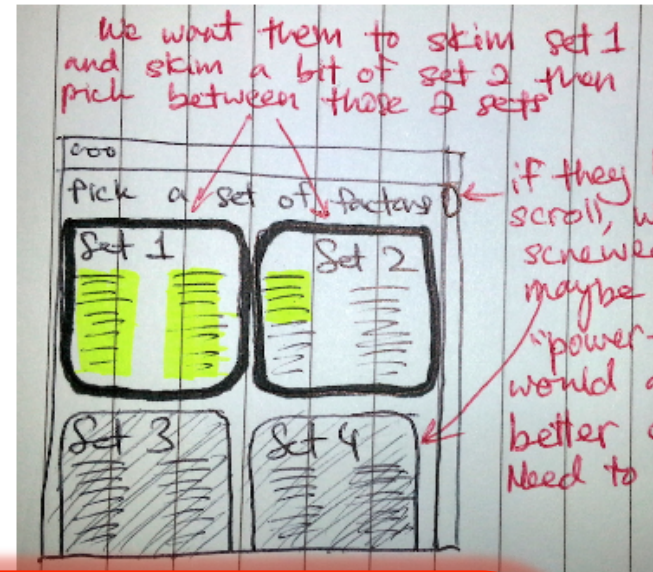 We want them to skim set 1
and skim a bit of set 2 then
pick between those 2 sets
Pick a set of factors
Set 1
Set 2
if they
scroll,
maybe
"power-
would
better
Need to
Set 3
Set 4